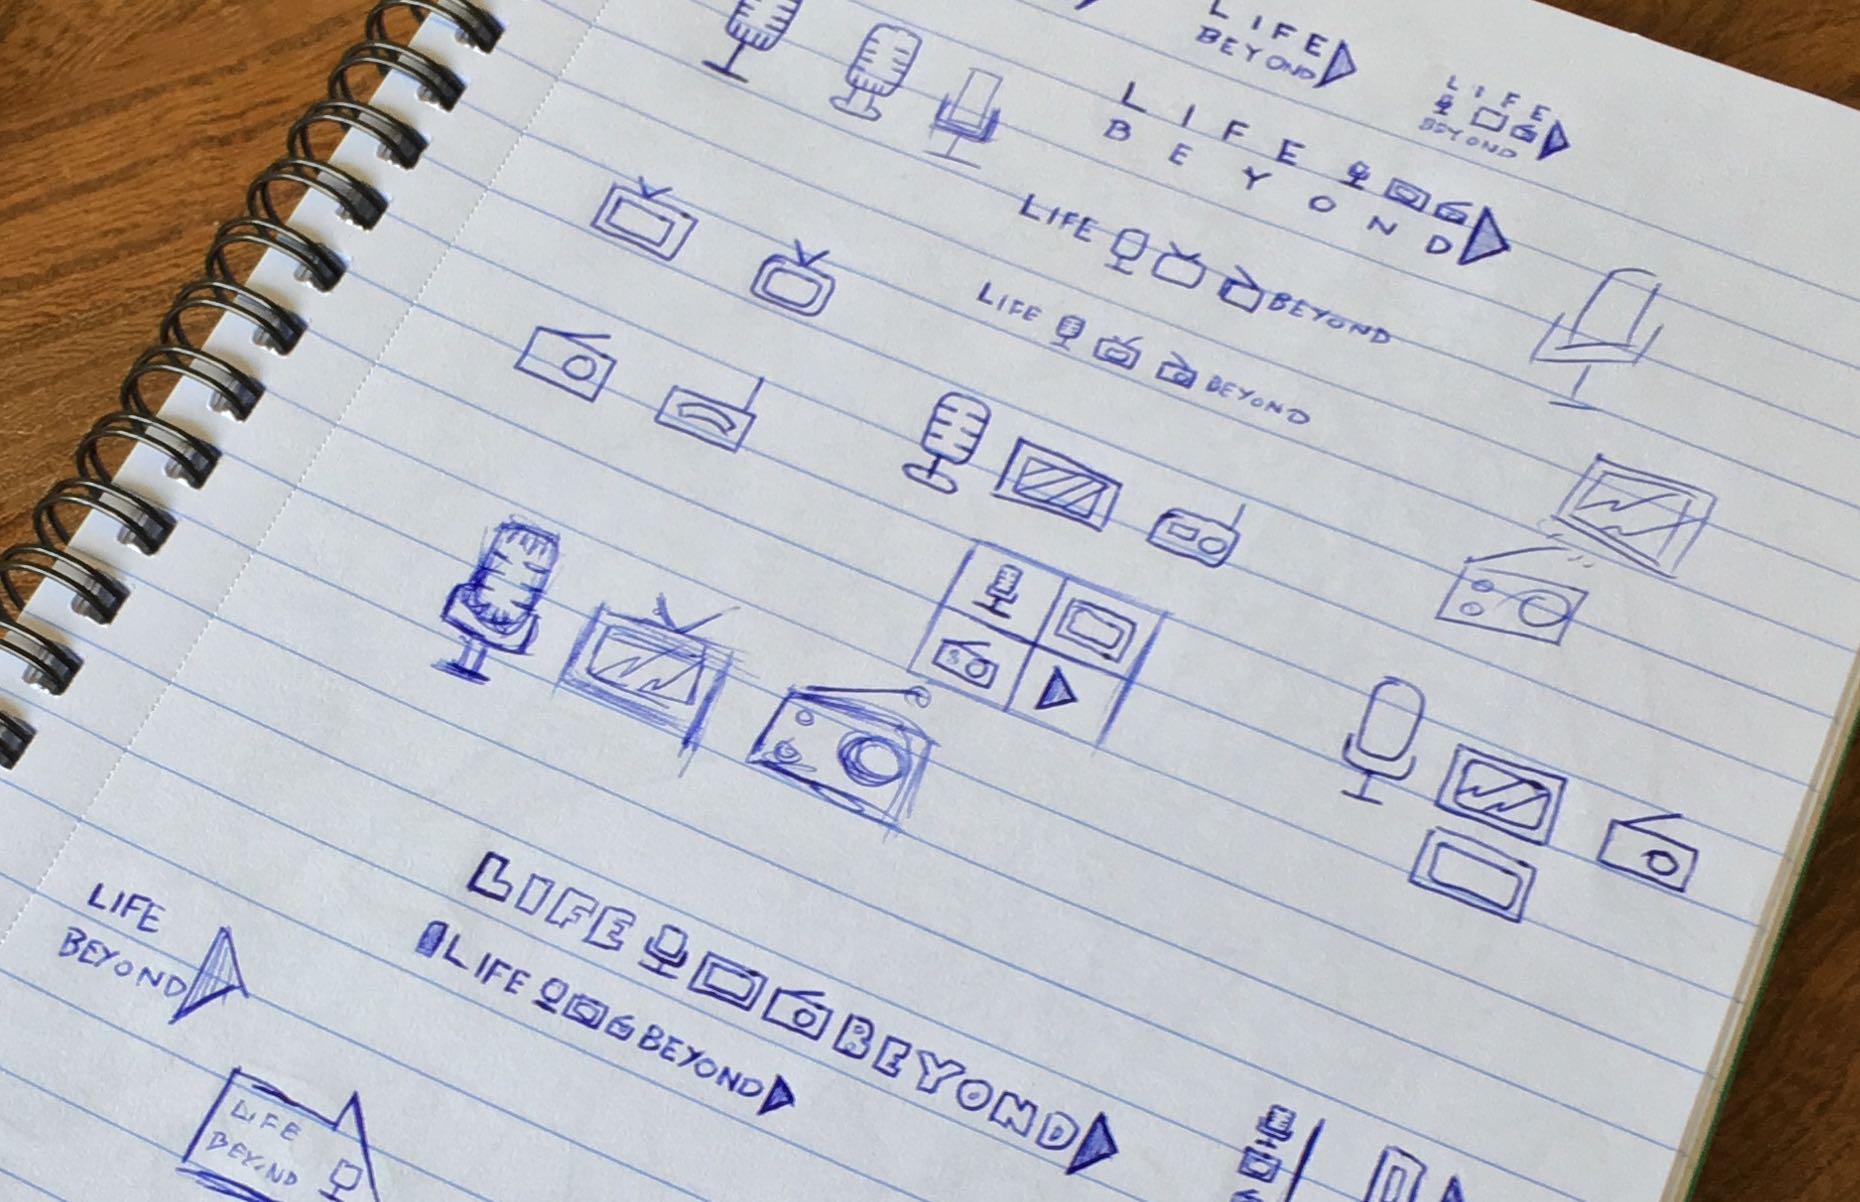 LIFE
BEYOND
LIFE
BEYOND
LIFE
BEYOND
LIFE BEYOND
LIFE BEYOND
LIFE
BEYOND
LIFE BEYOND
LIFE BEYOND
LIFE
BEYOND